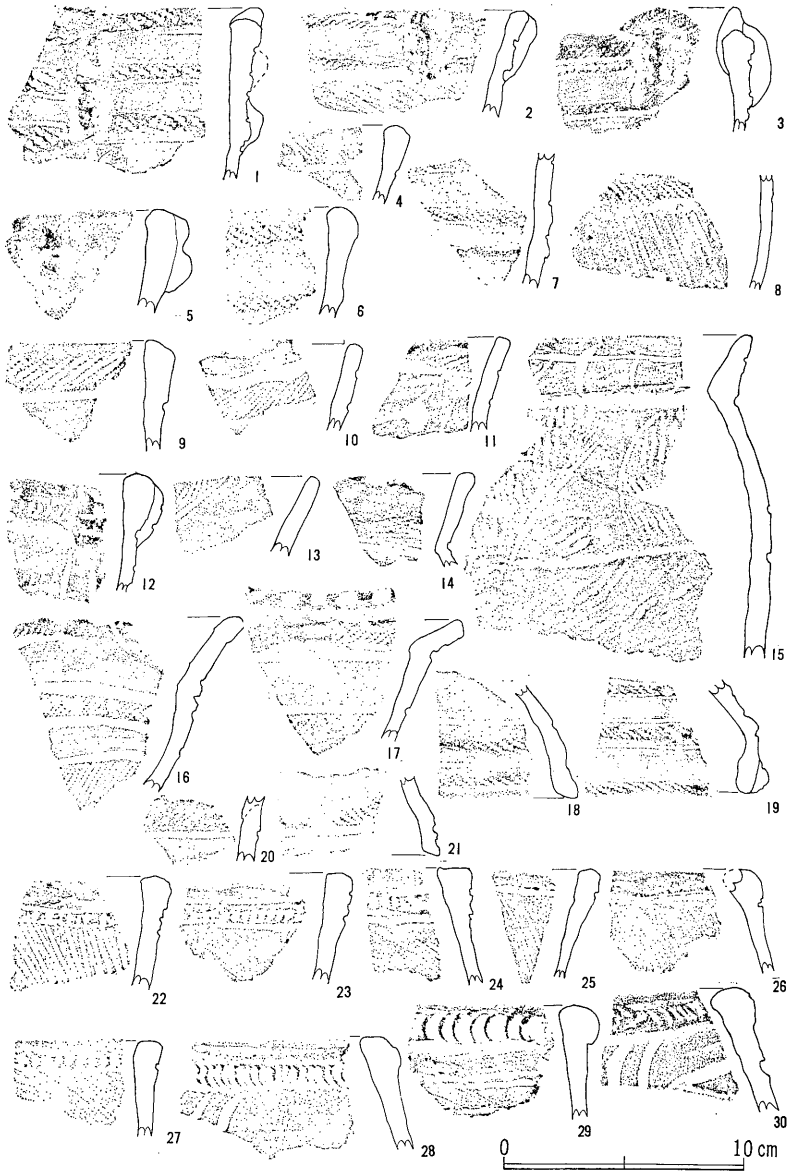 1 2 3
4 7 8
5 6
9 10 11
12 13 14 15
16 17 18 19
20 21
22 23 24 25 26
27 28 29 30
0 10 cm